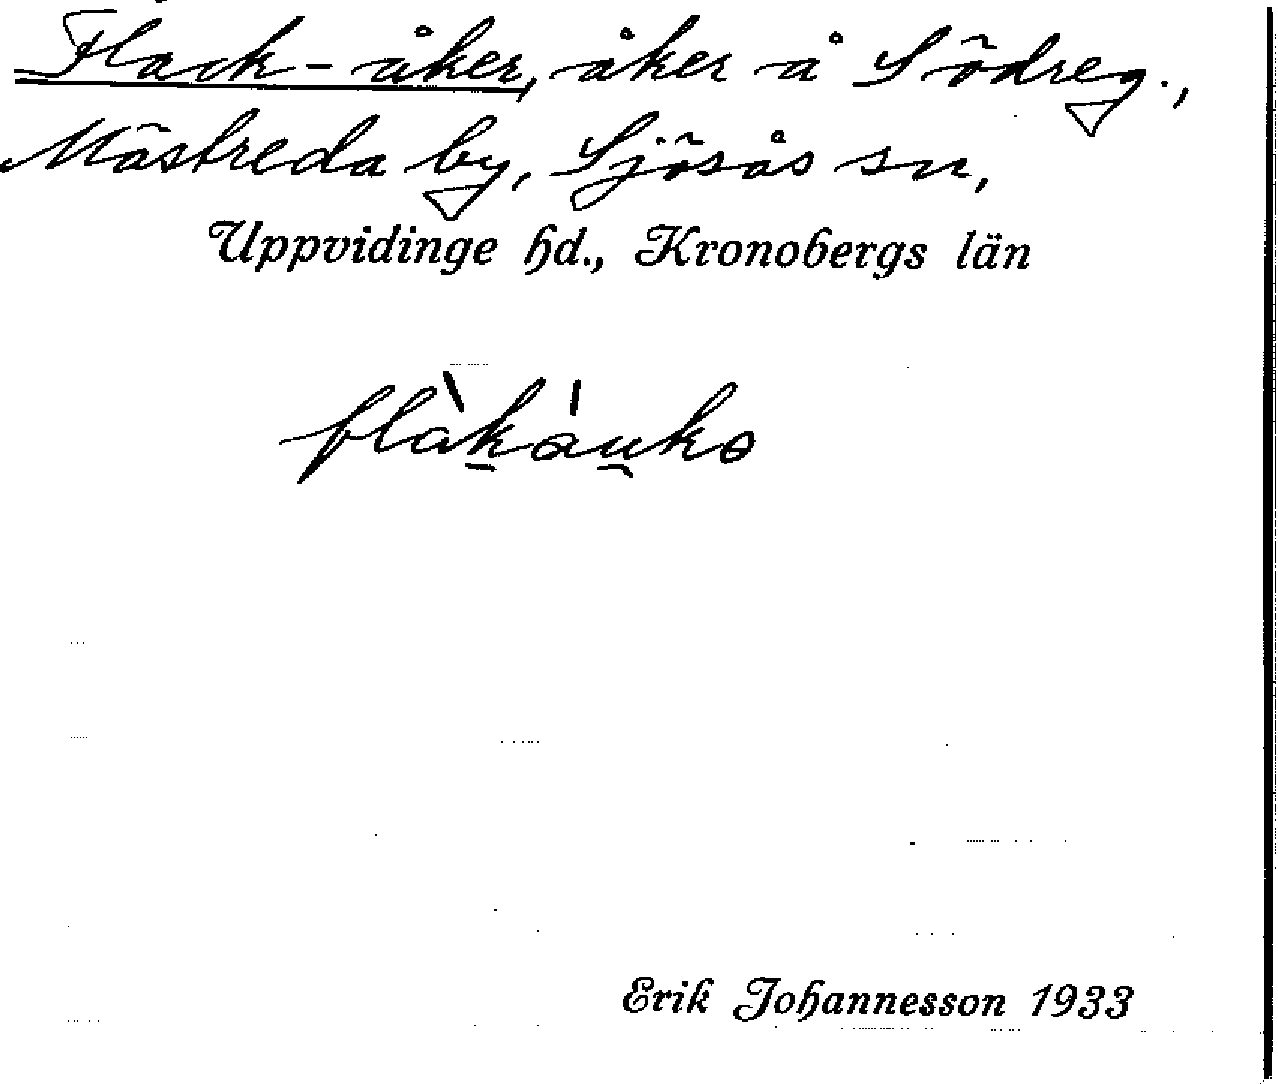 Flack-åker, åker å Södreg.,
Mästreda by, Sjösås sn,
Uppvidinge hd., Kronobergs län
Erik Johannesson 1933